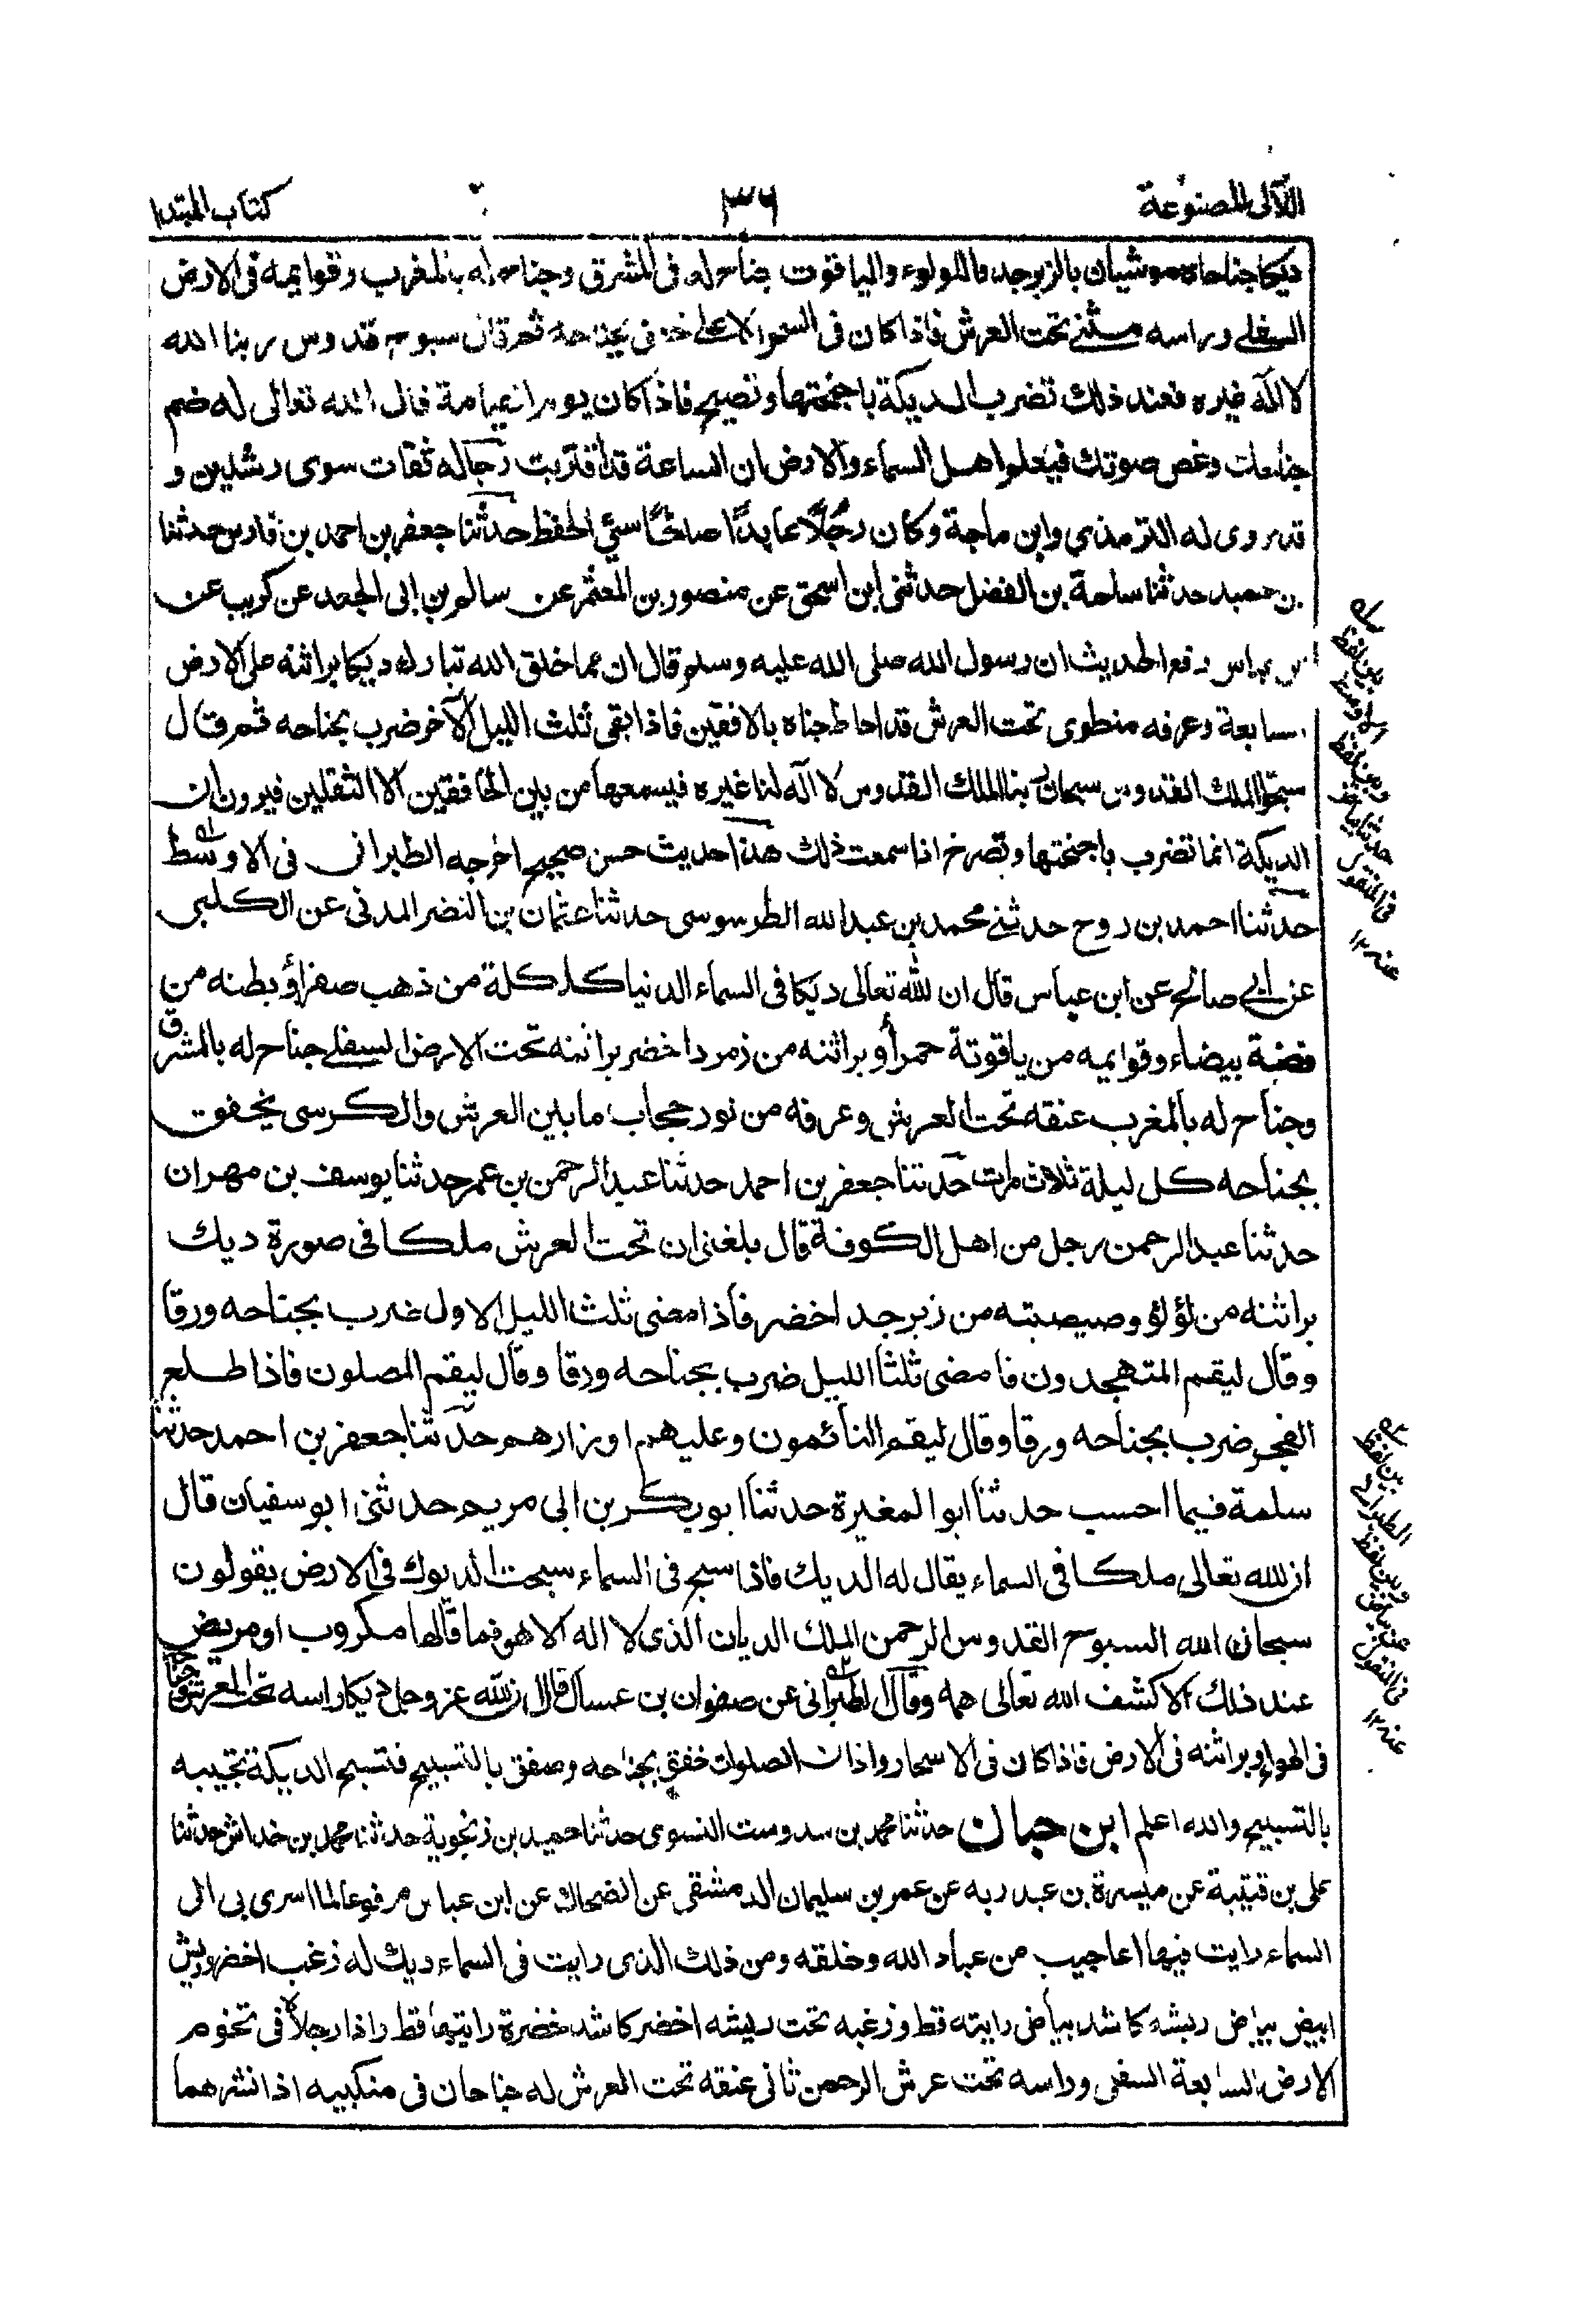 الآلى المصنوعة
٣٦
كتاب المبتدا
ديكا جناحاه موشيان بالزبرجد واللولوء والياقوت جناح له فى المشرق وجناح له بالمغرب وقوايمه فى الارض
السفلے وراسه مثنے تحت العرش فاذا كان فى السحر الاعلے خفق بجناحه ثم قال سبوح قدوس ربنا الله
لا اله غيره فعند ذلك تضرب الديكة باجنحتها وتصيح فاذا كان يوم القيامة قال الله تعالى له ضم
جناحك وغض صوتك فيعلم اهل السماء والارض ان الساعة قد اقتربت رجاله ثقات سوى رشدين و
قد روى له الترمذي وابن ماجة وكان رجُلاً عابدًا صالحًا سئ الحفظ حدثنا جعفر بن احمد بن فارس حدثنا
بن حميد حدثنا سلمة بن الفضل حدثنى ابن اسحق عن منصور بن المعتمر عن سالم بن ابى الجعد عن كريب عن
عباس رفع الحديث ان رسول الله صلى الله عليه وسلم قال ان مما خلق الله تبارك ديكا براثنه على الارض
السابعة وعرفه منطوى تحت العرش قد احاط جناه بالافقين فاذا بقى ثلث الليل الآخر ضرب بجناحه ثم قال
سبحوا الملك القدوس سبحان ربنا الملك القدوس لا اله لنا غيره فيسمعها من بين الخافقين الا الثقلين فيرون ان
الديكة انما تضرب باجنحتها وتصرخ اذا سمعت ذلك هذا حديث حسن صحيح اخرجه الطبرانى فى الاوسط
حدثنا احمد بن روح حدثنے محمد بن عبد الله الطرسوسى حدثنا عثمان بن النضر المدنى عن الكلبى
عن ابى صالح عن ابن عباس قال ان لله تعالى ديكا فى السماء الدنيا كلكلة من ذهب صفراؤ بطنه من
فضة بيضاء وقوايمه من ياقوتة حمرأ وبراثنه من زمرد اخضر براثنه تحت الارض السفلے جناح له بالمشرق
وجناح له بالمغرب عنقه تحت العرش وعرفه من نور حجاب ما بين العرش والكرسى يخفوت
بجناحه كل ليلة ثلاث مرات حدثنا جعفر بن احمد حدثنا عبد الرحمن بن عمر حدثنا يوسف بن مهران
حدثنا عبد الرحمن رجل من اهل الكوفة قال بلغنى ان تحت العرش ملكا فى صورة ديك
براثنه من لؤلؤ وصيصيته من زبرجد اخضر فاذا مضى ثلث الليل الاول ضرب بجناحه ورقا
وقال ليقم المتهجدون فا مضى ثلثا الليل ضرب بجناحه ورقا وقال ليقم المصلون فاذا طلع
الفجر ضرب بجناحه ورقا وقال ليقم النائمون وعليهم اوزارهم حدثنا جعفر بن احمد حدثنا
سلمة فيما احسب حدثنا ابو المغيرة حدثنا ابو بكر بن ابى مريم حدثنى ابو سفيان قال
ان لله تعالى ملكا فى السماء يقال له الديك فاذا سبح فى السماء سبحت الديوك فى الارض يقولون
سبحان الله السبوح القدوس الرحمن الملك الديان الذى لا اله الا هو فما قالها مكروب او مريض
عند ذلك الا كشف الله تعالى همه وقال الطبرانى عن صفوان بن عسال قال ان لله عز وجل ديكا راسه تحت العرش وجناحه
فى الهواء وبراثنه فى الارض فاذا كان فى الاسحار واذان الصلوات خفق بجناحه وصفق بالتسبيح فتسبح الديكة تجيبه
بالتسبيح والله اعلم ابن حبان حدثنا محمد بن سدوست النسوى حدثنا حميد بن زنجوية حدثنا محمد بن خداش حدثنا
على بن قتيبة عن ميسرة بن عبد ربه عن عمر بن سليمان الدمشقى عن الضحاك عن ابن عباس مرفوعا لما اسرى بى الى
السماء رايت فيها اعاجيب من عباد الله وخلقه ومن ذلك الذى رايت فى السماء ديك له زغب اخضر وريش
ابيض بياض ريشه كاشد بياض رايته قط وزغبه تحت ريشه اخضر كاشد خضرة رايتها قط واذا رجلاه فى تخوم
الارض السابعة السفلى وراسه تحت عرش الرحمن ثانى عنقه تحت العرش له جناحان فى منكبيه اذا نشرهما